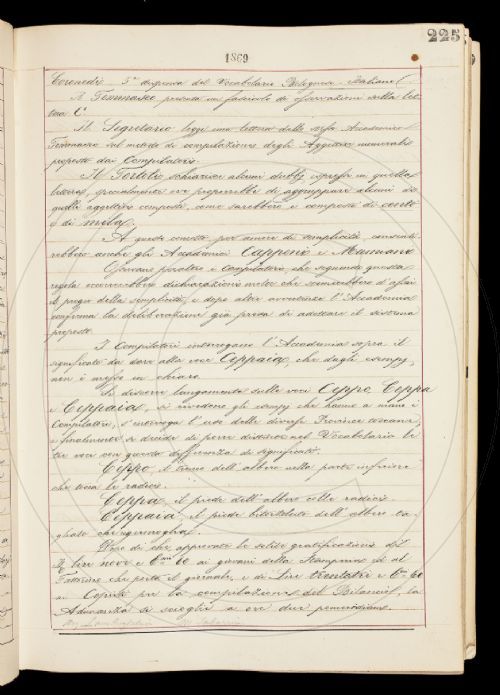 225
1869
Coronedi. 5ª dispensa del Vocabolario Bolognese-Italiano(
Il Tommaseo presenta un fascicolo di osservazioni sulla let
tera C.
Il Segretario legge una lettera dello stesso Accademico
Tommaseo sul metodo di compilazione degli Aggettivi numerali
proposto dai Compilatori.
Il Tortoli schiarisce alcuni dubbj espressi in quella
lettera, specialmente ove proporrebbe di aggruppare alcuni di
quelli aggettivi composti, come sarebbero i composti di cento
e di mila.
A questo concetto per amore di semplicità, consenti
rebbero anche gli Accademici Capponi e
Osservano peraltro i Compilatori, che seguendo questa
regola occorrerebbero dichiarazioni molte che scemerebbero d'assai
il pregio della semplicità, e dopo altre avvertenze l'Accademia
conferma la deliberazione già presa di adottare il sistema
proposto.
I Compilatori interrogano l'Accademia sopra il
significato da dare alla voce Ceppaia, che dagli esempj
non è messo in chiaro.
Si discorre lungamente sulle voci Ceppo, Ceppa
e Ceppaia, si rivedono gli esempj che hanno a mano i
Compilatori, s'interroga l'uso delle diverse Provincie toscane,
e finalmente si decide di porre distinte nel Vocabolario le
tre voci con questa differenza di significati:
Ceppo, il tronco dell'albero nella parte inferiore
che tocca le radici.
Ceppa, il piede dell'albero colle radici.
Ceppaia, il piede dell'albero ta
gliato che rigermoglia.
Dopo di che approvate le solite gratificazioni di
Lire nove e C.mi 60 ai giovani della Stamperia ed al
Fattorino che porta il giornale, e di Lire trentatre e C.mi 60
ai Copisti per la compilazione del Bilancio, la
Adunanza si scioglie a ore due pomeridiane.